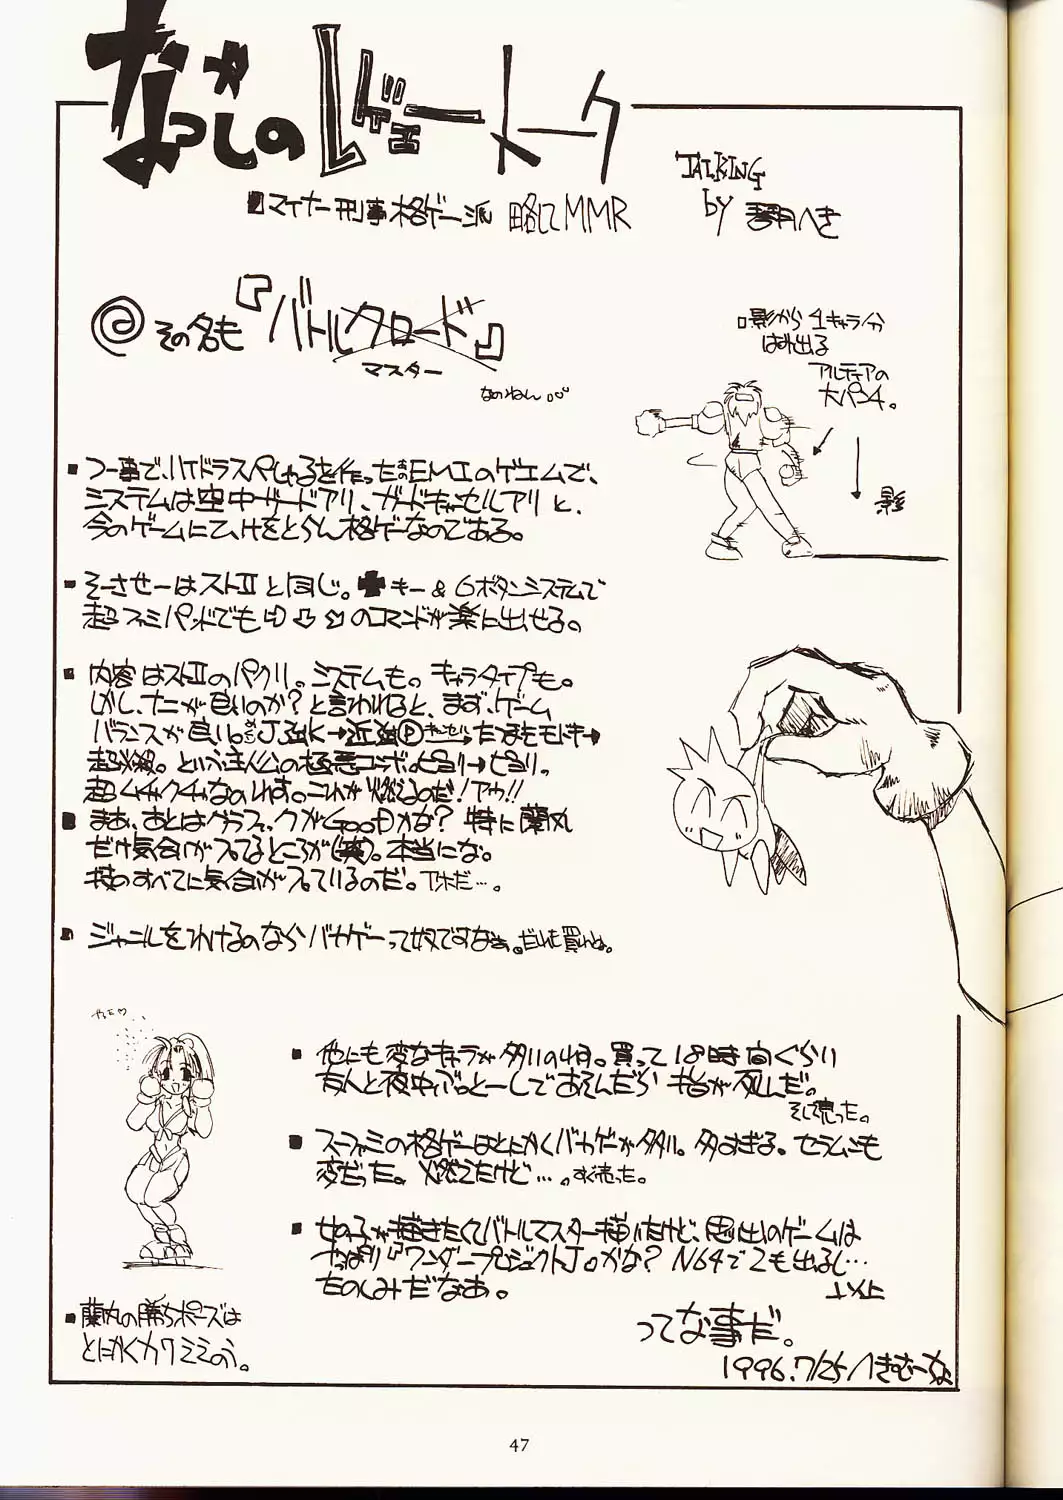 なつかしのレヴューートーク
TALKING
by 琴月へき
マイナー刑事格ゲー派 略してMMR
@その名も『バトルクロード』
マスター
なのねん。
影から1キャラ分
はみ出る
アルティアの
大パンチ。
影
つー事で、ハイドラスペしゃるを作ったあのEMIのゲエムで、
システムは空中ガードアリ、ガードキャンセルアリと、
今のゲームにひけをとらん格ゲーなのである。
そーさせーはストIIと同じ。✚キー&6ボタンシステムで
超ファミパッドでも⇨⇩⬂のコマンドが楽に出せる。
内容はストIIのパクリ。システムも。キャラタイプも。
しかし、ナニが良いのか?と言われると、まず、ゲーム
バランスが良い。J強K→近強Ⓟ→たつまきモドキ→
超必殺。という主人公の極悪コンボ。ピヨリ→ピヨリ。
超ムチャクチャなのれす。これが燃えるのだ!アウ!!
まあ、あとはグラフィックがGooDかな?特に蘭丸
だけ気合いが入ってるところが(笑)。本当にな。
技のすべてに気合が入っているのだ。アホだ…。
ジャンルをわけるのならバカゲーって奴ですなぁ。だれも買わん。
他にも変なキャラが多いのね。買って18時間ぐらい
友人と夜中ぶっとーしであそんだら指が死んだ。
そして売った。
スーファミの格ゲーはとにかくバカゲーが多い。多すぎる。セラムンも
変だった。燃えたけど…。すぐ売った。
女の子が描きたくてバトルマスター描いたけど、思い出のゲームは
やっぱり『ワンダープロジェクトJ』かな?N64で2も出るし…
たのしみだなあ。
以上
ってな事だ。
1996.7/25 へきむーな
やった♡
蘭丸の勝ちポーズは
とにかくカワミミのう。
47